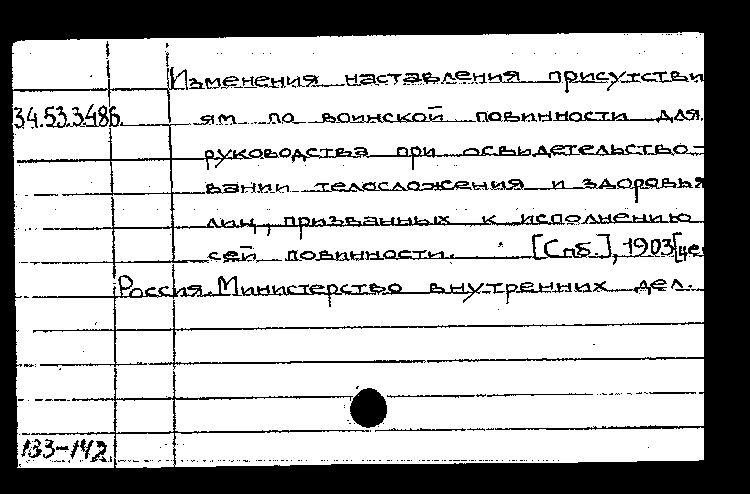 Изменения наставления присутстви
34.53.3486. ям по воинской повинности для
руководства при освидетельство-
вании телосложения и здоровья
лиц, призванных к исполнению
сей повинности. [Спб.], 1903 [цен
Россия. Министерство внутренних дел.
133-142